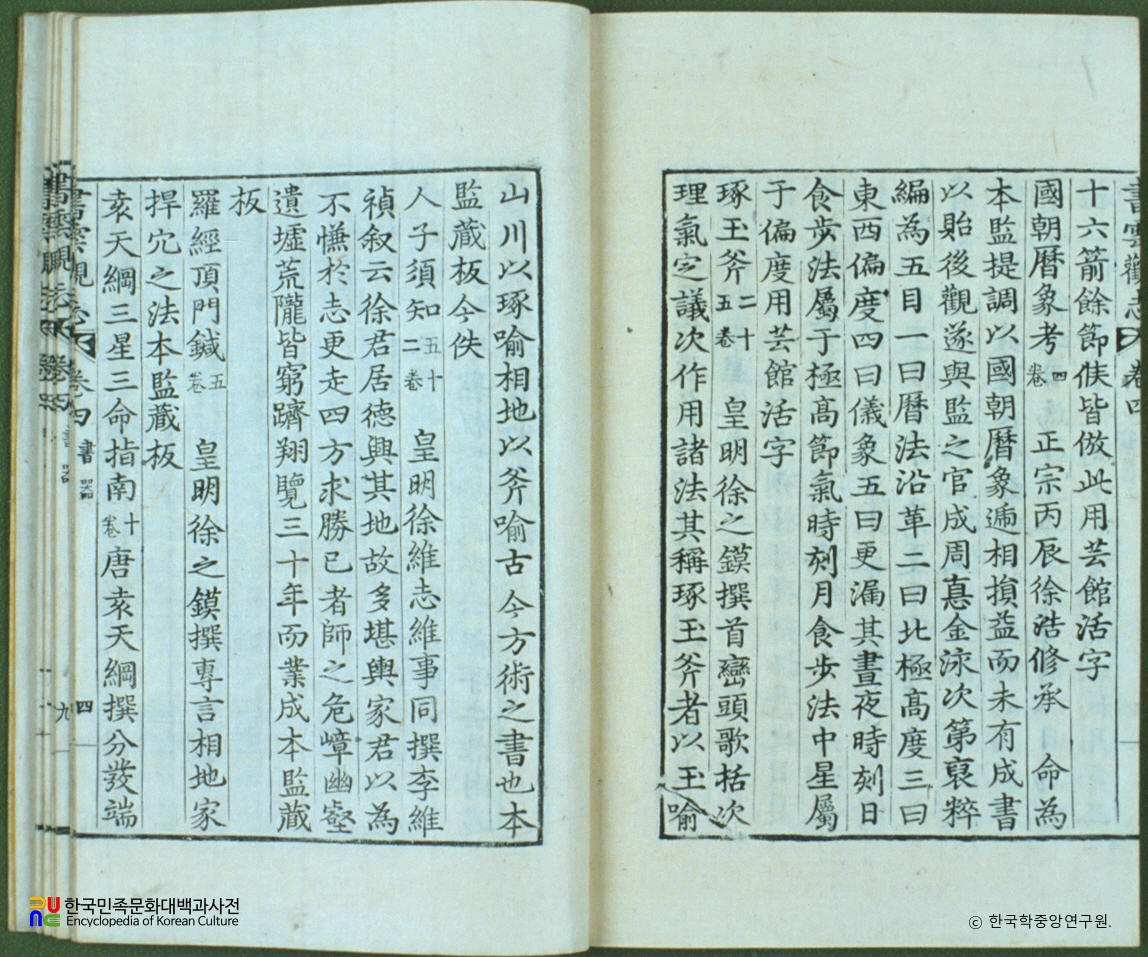 書雲觀志 卷四
十六箭餘節候皆倣此用芸館活字
國朝曆象考四卷 正宗丙辰徐浩修承 命為
本監提調以國朝曆象遞相損益而未有成書
以貽後觀遂與監之官成周悳金泳次第裒粹
編為五目一曰曆法沿革二曰北極高度三曰
東西偏度四曰儀象五曰更漏其晝夜時刻日
食步法屬于極高節氣時刻月食步法中星屬
于偏度用芸館活字
琢玉斧二十五卷 皇明徐之鏌撰首巒頭歌括次
理氣定議次作用諸法其稱琢玉斧者以玉喻
山川以琢喻相地以斧喻古今方術之書也本
監藏板今佚
人子須知五十二卷 皇明徐維志維事同撰李維
禎叙云徐君居德興其地故多堪輿家君以為
不慊於志更走四方求勝已者師之危嶂幽壑
遺墟荒隴皆窮躋翔覽三十年而業成本監藏
板
羅經頂門鍼五卷 皇明徐之鏌撰專言相地家
捍穴之法本監藏板
袁天綱三星三命指南十卷唐袁天綱撰分發端
書雲觀志 卷四 書器 四
한국민족문화대백과사전
Encyclopedia of Korean Culture
© 한국학중앙연구원.